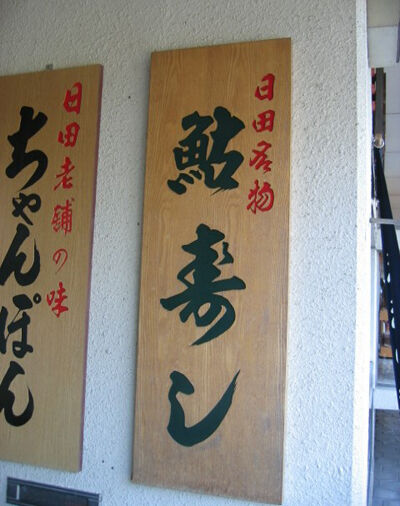 日田名物
鮎寿し
日田老舗の味
ちゃんぽん